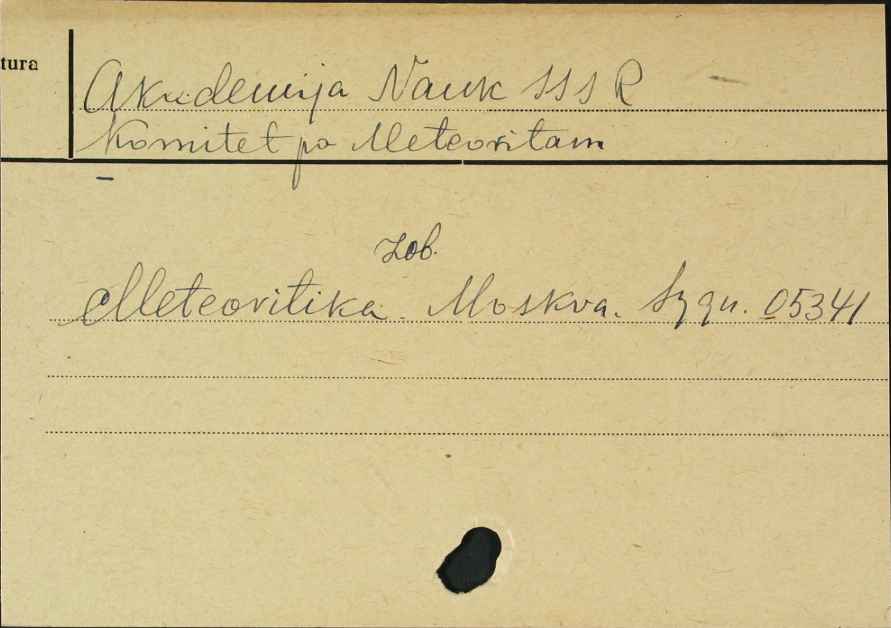 tura
Akademija Nauk SSSR
Komitet po Meteoritam
zob.
Meteoritika. Moskva. Sygn. 05341